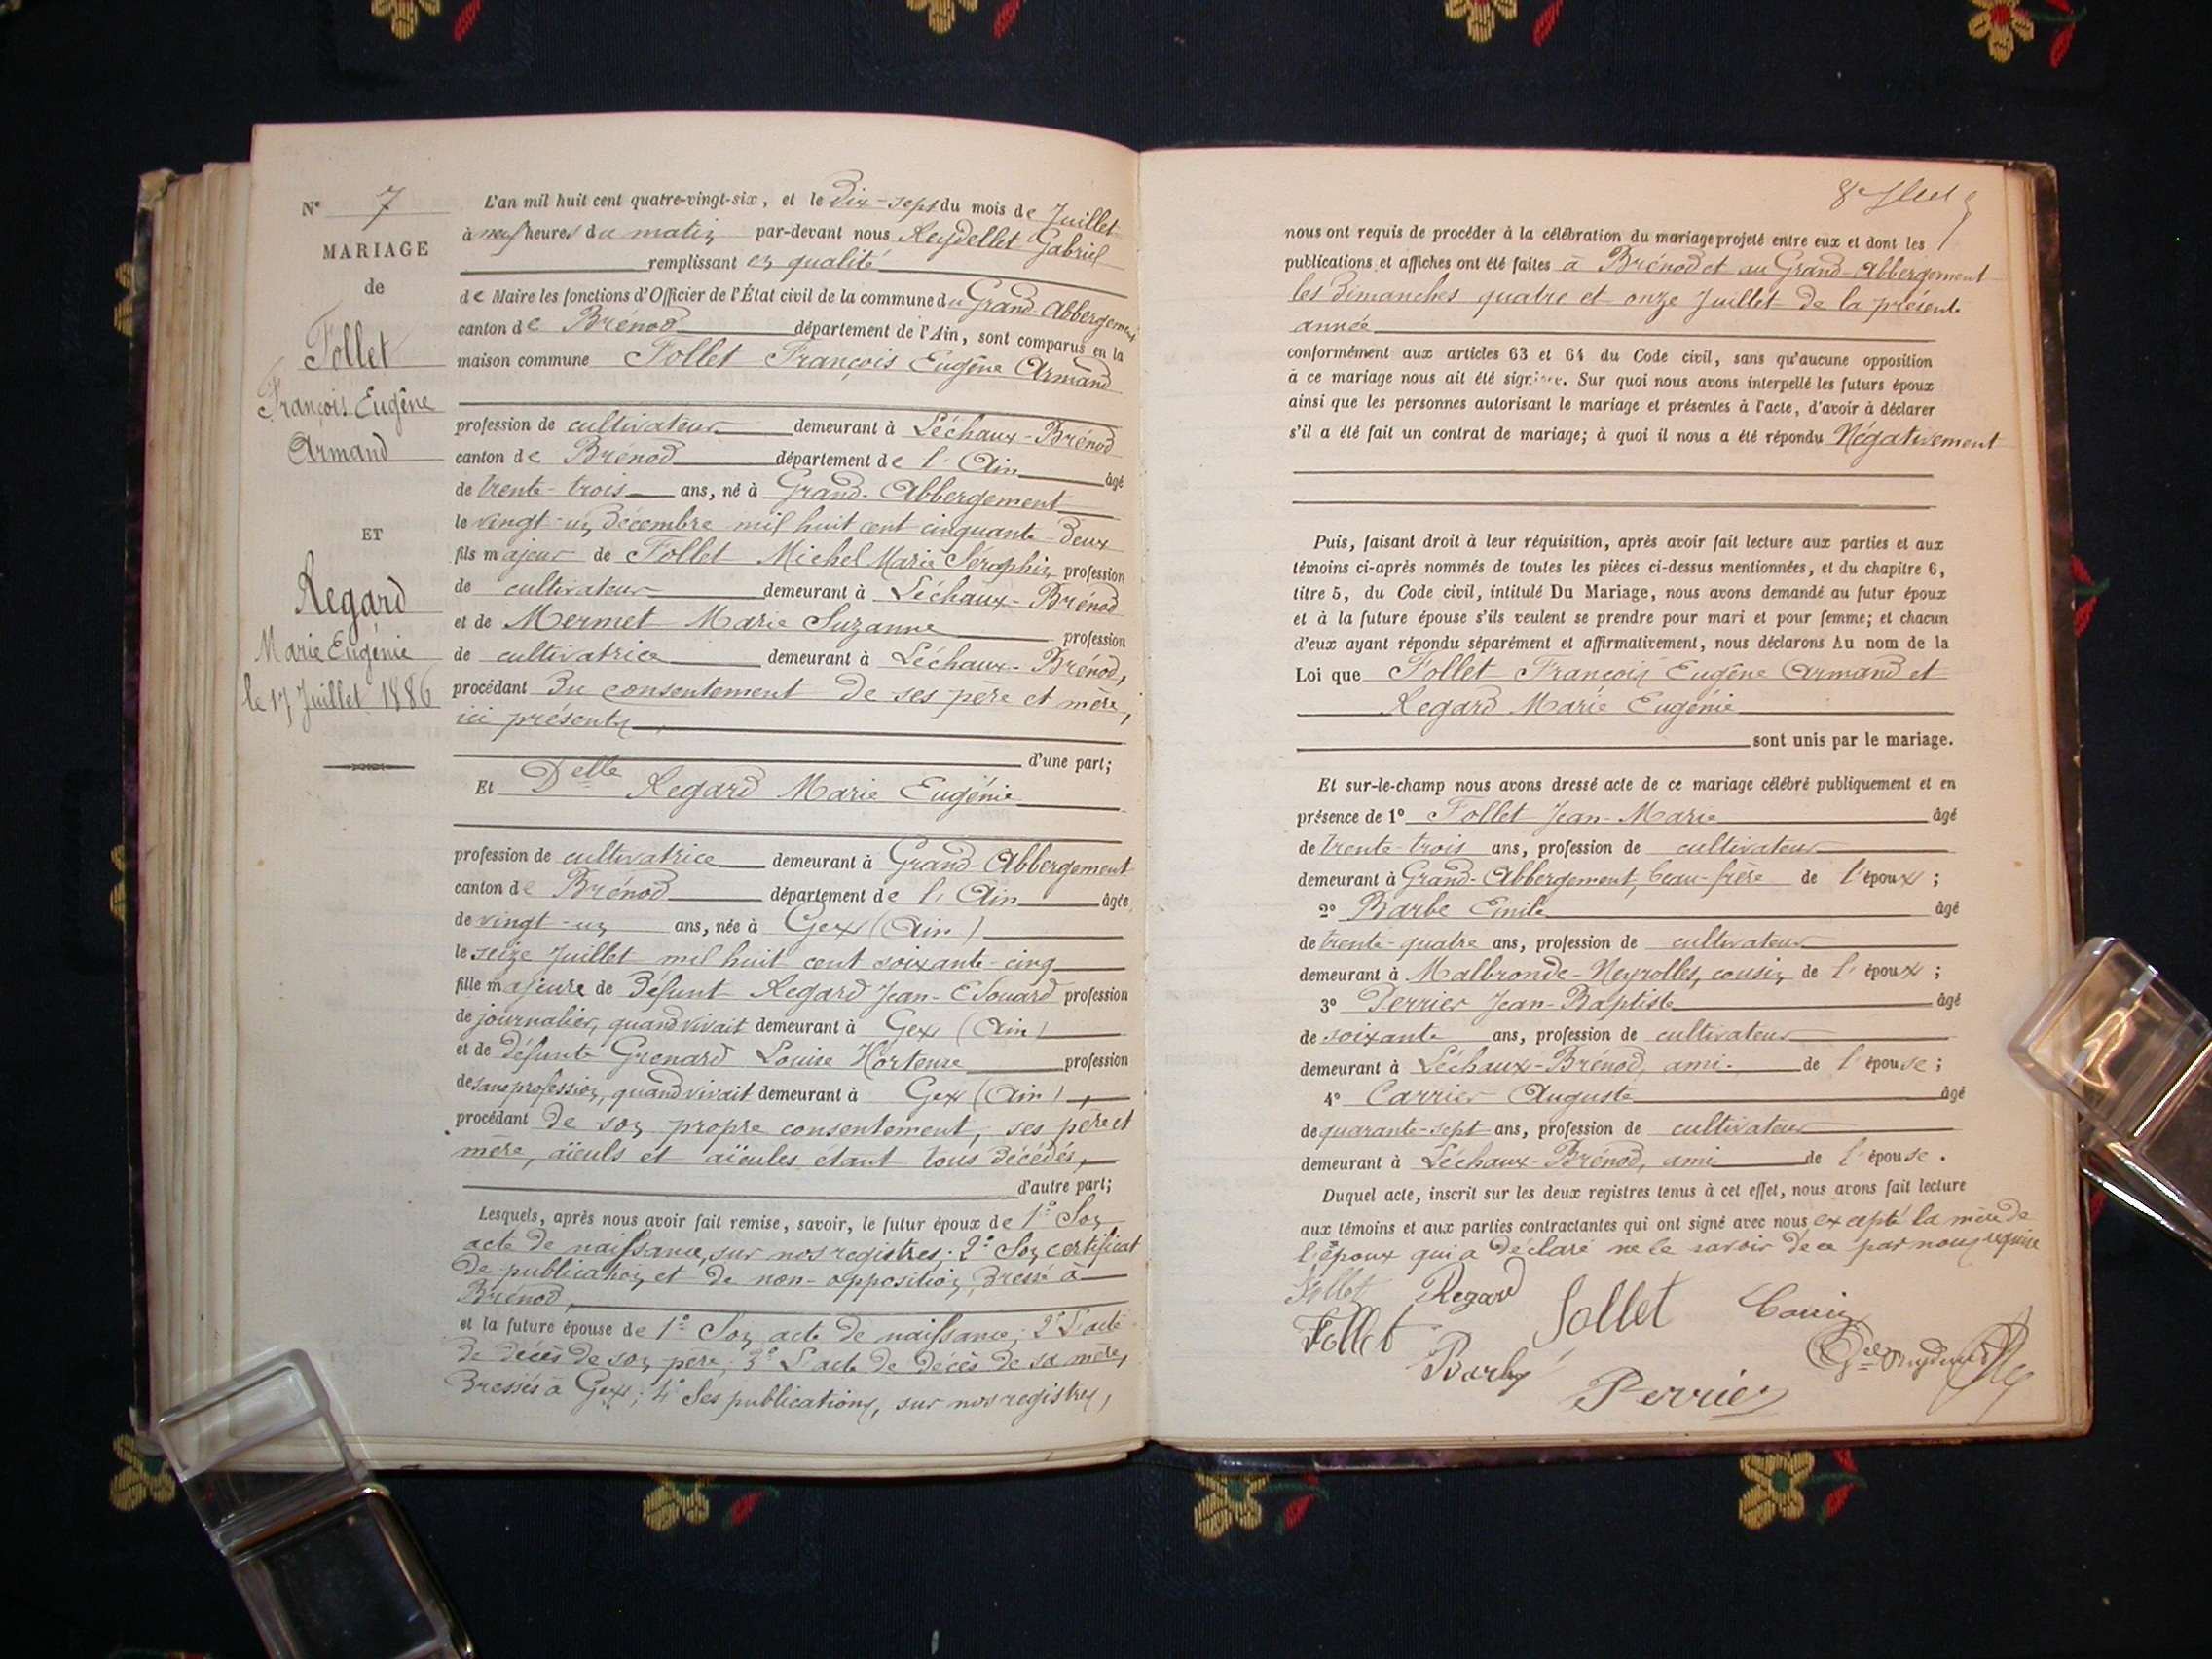 N° 7
MARIAGE
de
Follet
François Eugène
Armand
ET
Regard
Marie Eugénie
le 17 Juillet 1886
L'an mil huit cent quatre-vingt-six, et le Dix-sept du mois de Juillet
à neuf heures du matin par-devant nous Reydellet Gabriel
remplissant en qualité
de Maire les fonctions d'Officier de l'État civil de la commune du Grand-Abbergement
canton de Brénod département de l'Ain, sont comparus en la
maison commune Follet François Eugène Armand
profession de cultivateur demeurant à Léchaux-Brénod
canton de Brénod département de l'Ain âgé
de trente-trois ans, né à Grand-Abbergement
le vingt-un Décembre mil huit cent cinquante-deux
fils majeur de Follet Michel Marie Séraphin profession
de cultivateur demeurant à Léchaux-Brénod
et de Mermet Marie Suzanne profession
de cultivatrice demeurant à Léchaux-Brénod,
procédant du consentement de ses père et mère,
ici présents,
d'une part;
Et Delle Regard Marie Eugénie
profession de cultivatrice demeurant à Grand-Abbergement
canton de Brénod département de l'Ain âgée
de vingt-un ans, née à Gex (Ain)
le seize Juillet mil huit cent soixante-cinq
fille majeure de défunt Regard Jean-Edouard profession
de journalier, quand vivait demeurant à Gex (Ain)
et de défunte Grenard Louise Hortense profession
de sans profession, quand vivait demeurant à Gex (Ain),
procédant de son propre consentement, ses père et
mère, aïeuls et aïeules étant tous décédés,
d'autre part;
Lesquels, après nous avoir fait remise, savoir, le futur époux de 1° Son
acte de naissance, sur nos registres; 2° Son certificat
de publication et de non-opposition, dressé à
Brénod,
et la future épouse de 1° Son acte de naissance; 2° L'acte
de décès de son père; 3° L'acte de décès de sa mère,
dressés à Gex; 4° Ses publications, sur nos registres,
nous ont requis de procéder à la célébration du mariage projeté entre eux et dont les
publications et affiches ont été faites à Brénod et au Grand-Abbergement
les Dimanches quatre et onze Juillet de la présente
année
conformément aux articles 63 et 64 du Code civil, sans qu'aucune opposition
à ce mariage nous ait été signifiée. Sur quoi nous avons interpellé les futurs époux
ainsi que les personnes autorisant le mariage et présentes à l'acte, d'avoir à déclarer
s'il a été fait un contrat de mariage; à quoi il nous a été répondu Négativement
Puis, faisant droit à leur réquisition, après avoir fait lecture aux parties et aux
témoins ci-après nommés de toutes les pièces ci-dessus mentionnées, et du chapitre 6,
titre 5, du Code civil, intitulé Du Mariage, nous avons demandé au futur époux
et à la future épouse s'ils veulent se prendre pour mari et pour femme; et chacun
d'eux ayant répondu séparément et affirmativement, nous déclarons Au nom de la
Loi que Follet François Eugène Armand et
Regard Marie Eugénie
sont unis par le mariage.
Et sur-le-champ nous avons dressé acte de ce mariage célébré publiquement et en
présence de 1° Follet Jean-Marie âgé
de trente-trois ans, profession de cultivateur
demeurant à Grand-Abbergement, beau-frère de l'époux;
2° Barbe Emile âgé
de trente-quatre ans, profession de cultivateur
demeurant à Malbronde-Neyrolles, cousin de l'époux;
3° Perrier Jean-Baptiste âgé
de soixante ans, profession de cultivateur
demeurant à Léchaux-Brénod, ami de l'épouse;
4° Carrier Auguste âgé
de quarante-sept ans, profession de cultivateur
demeurant à Léchaux-Brénod, ami de l'épouse.
Duquel acte, inscrit sur les deux registres tenus à cet effet, nous avons fait lecture
aux témoins et aux parties contractantes qui ont signé avec nous excepté la mère de
l'époux qui a déclaré ne le savoir de ce par nous requise
Follet Regard Follet
Follet Barbe Perrier